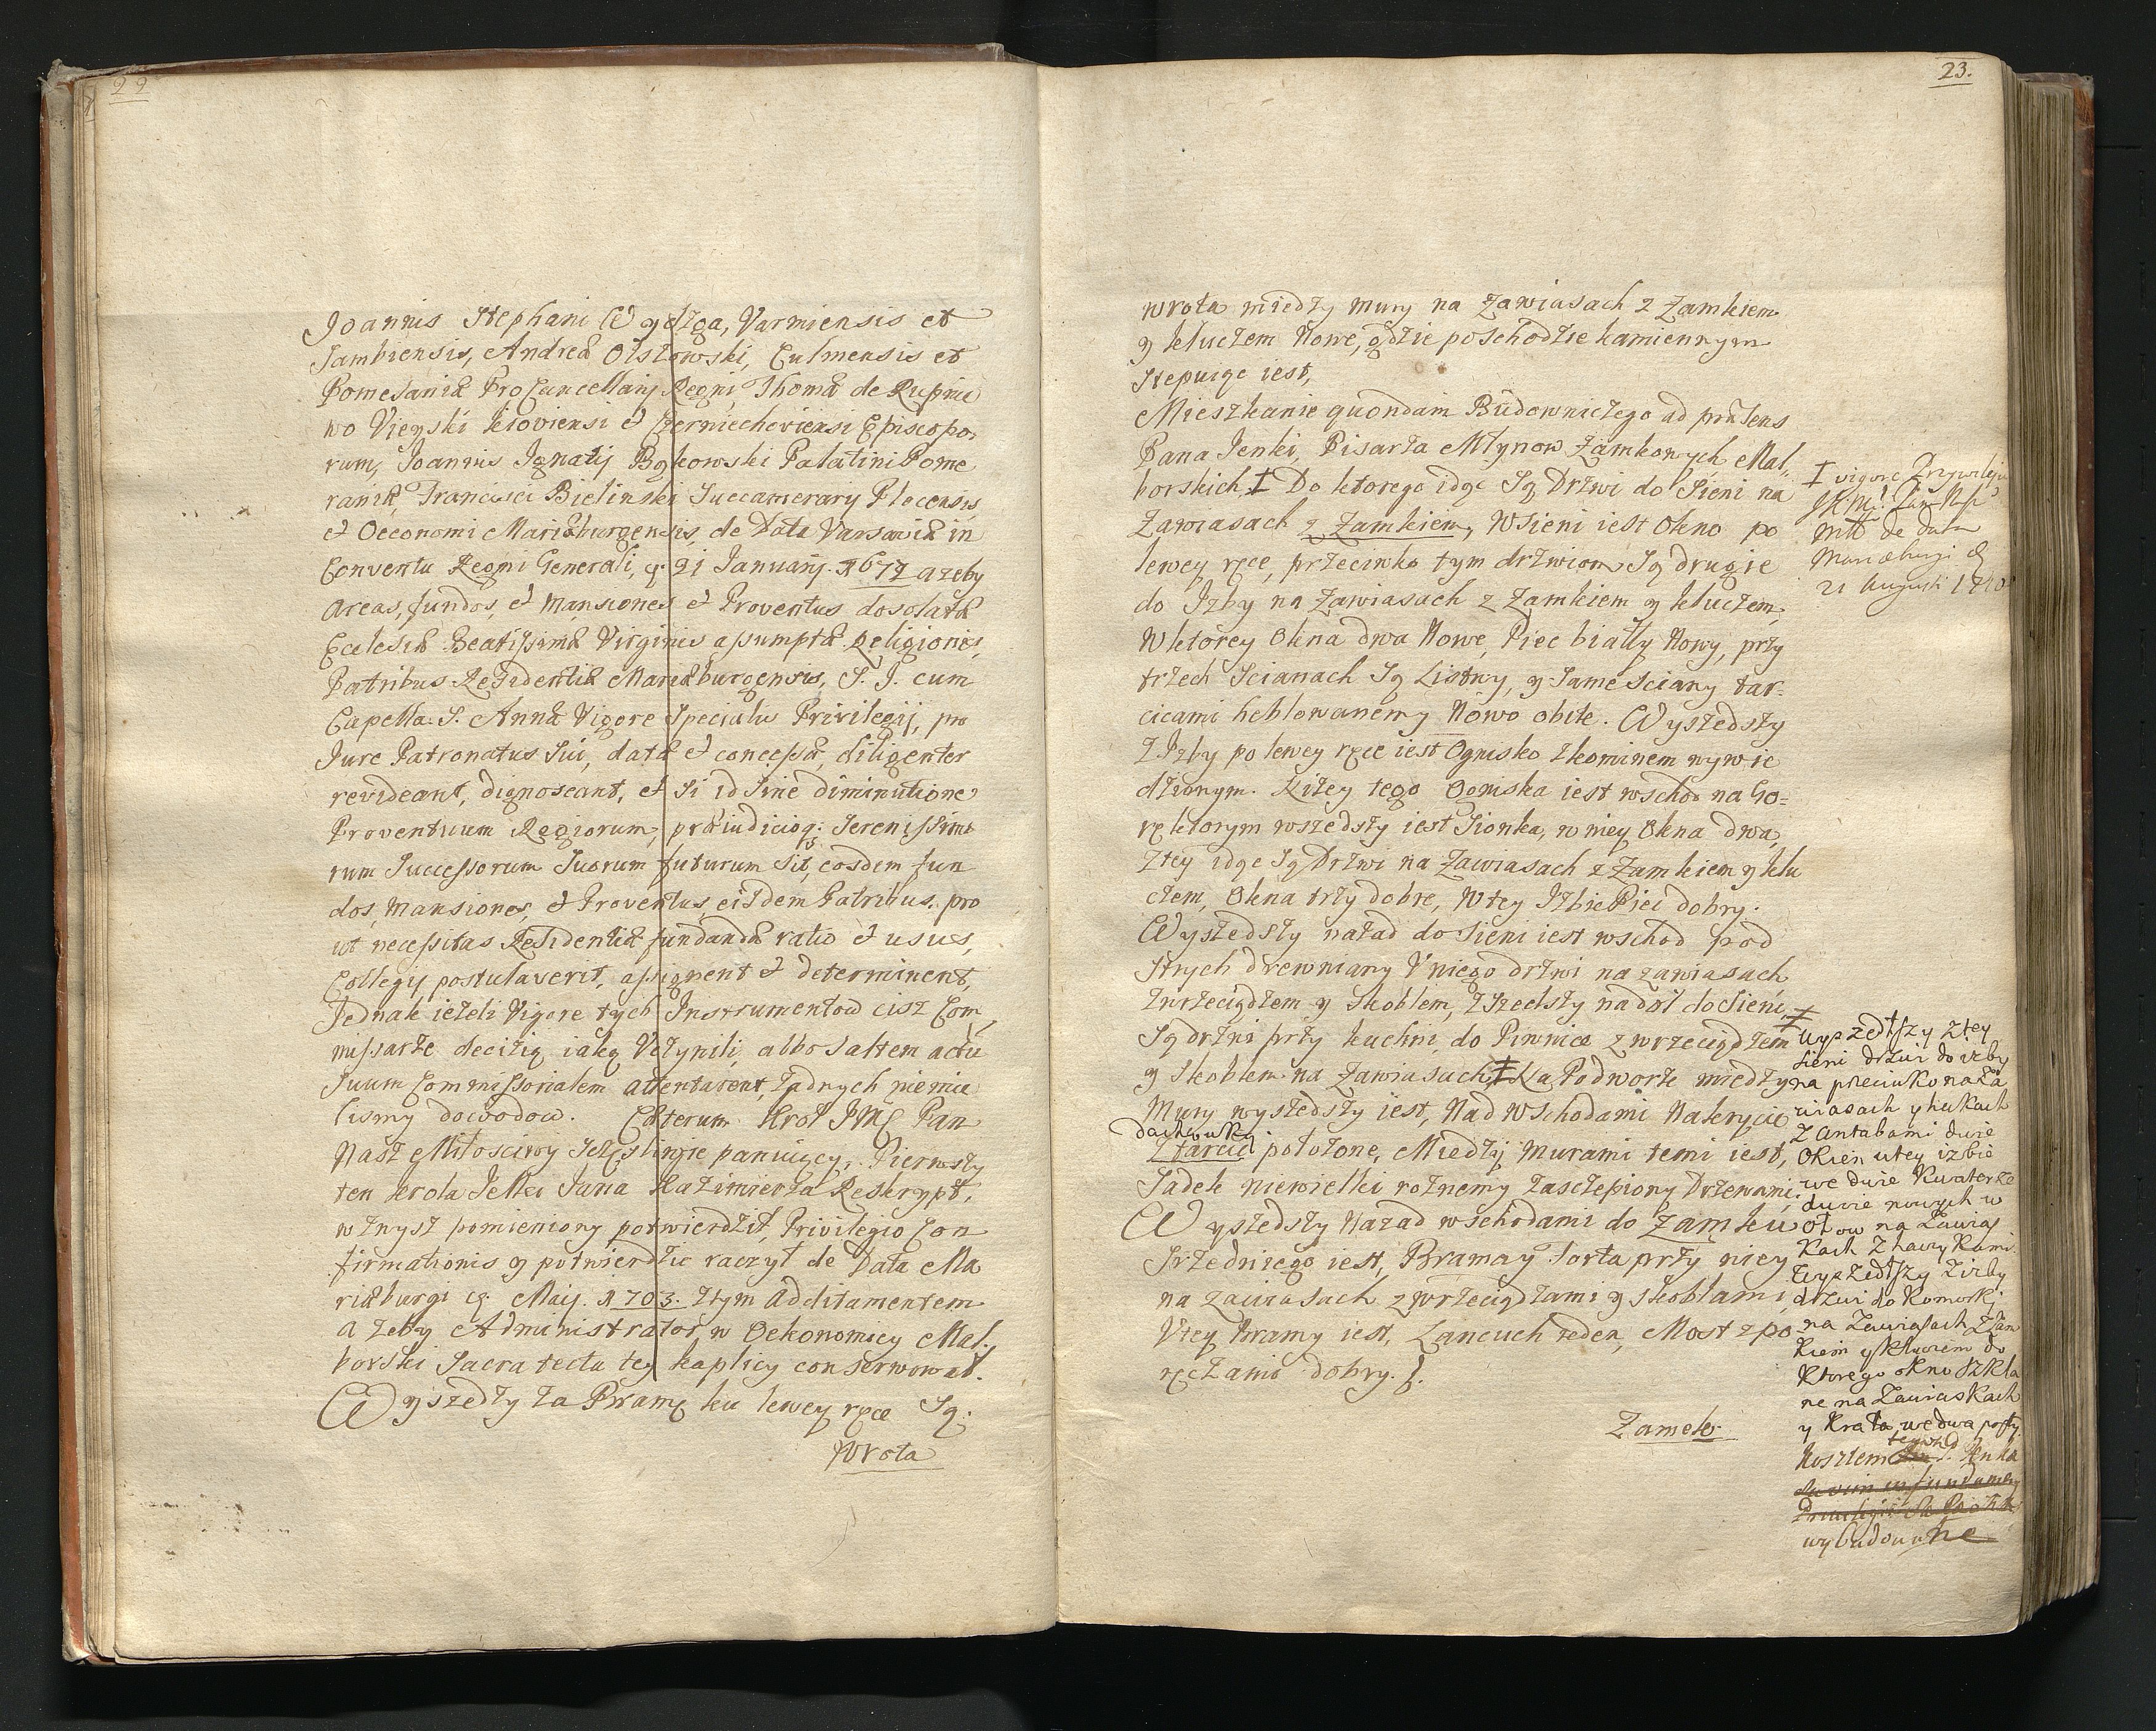 22
Joannis Stephani Wydzga, Varmiensis et
Sambiensis, Andreæ Olszowski, Culmensis et
Pomesaniæ ProCancellarij Regni, Thomæ de Rupnie
wo Vieyski Kioviensi et Czerniechoviensi Episcopo,
rum, Joannis Ignatij Bąkowski Palatini Pome
raniæ, Francisci Bielinski Succamerarij Plocensis
et Oeconomi Mariæburgensis, de Data Varsaviæ in
Conventu Regni Generali, 21 January. 1672 azeby
Areas, fundos, et Mansiones et Proventus dosolatæ
Ecclesiæ Beatissimæ Virginis assumptæ Religionis,
Patribus Residentiæ Mariæburgensis, S. J. cum
Capella S. Annæ Vigore Specialis Privilegij, pro
Jure Patronatus Sui, datæ et concessæ, diligenter
revideant, dignoscant, et Si id Sine diminutione
Proventuum Regiorum, præiudicioq; Serenissimo
rum Successorum Suorum futurum Sit, eosdem fun
dos, Mansiones, et Proventus, eisdem Patribus, pro
ut necessitas Residentiæ fundandæ ratio et usus,
Collegij postulaverit, assignent et determinent,
Jednak ieżeli Vigore tych Instrumentow cisz Com
missarze decizię iaką Vczynili, albo saltem actu
Suum Commissorialem attentarent, żadnych niemie
lismy dowodow. Cæterum Krol JMC Pan
Nasz Miłosciwy Szczęsliwie panuiący, Pierwszy
ten krola JeMci Jana Kazimierza Reskrypt,
wznysz pomieniony potwierdził, Privilegio Con
firmationis y potwierdzic raczył de Data Ma
riæburgi 19. Maij. 1703. Ztym Additamentem
A żeby Administrator, w Oekonomiey Mal.
borski Sacra tecta tey kaplicy conserwował.
Wyszedszy za Bramę ku lewey ręce Są.
Wrota
23.
wrota między mury na Zawiasach z Zamkiem
y kluczem Nowe, gdzie poschodzie kamiennym
Stepuiąc iest,
Mieszkanie quondam Budowniczego ad præsens
Pana Jenki, Pisarza Młynow Zamkowych Mal.
borskich, ‡ Do ktorego idąc Są Drzwi do Sieni na
Zawiasach z Zamkiem, WSieni iest Okno po
lewey ręce, przeciwko tym drzwiom Są drugie
do Izby na Zawiasach z Zamkiem y kluczem,
Wktorey Okna dwa Nowe, Piec biały Nowy, przy
trzech Scianach Są Listwy, y Same Sciany tar-
cicami heblowanemy Nowo obite. Wyszedszy
Z Izby po lewey ręce iest Ognisko Zkominem wywie
dzionym. Bliżey tego Ogniska iest wschod na Go=
rę ktorym wszedszy iest Sionka, w niey Okna dwa,
Ztey idąc Są Drzwi na Zawiasach z Zamkiem y klu
czem, Okna trzy dobre, Wtey Izbie Piec dobry.
Wyszedszy nazad do sieni iest wschod pod
Strych drewniany V niego drzwi na zawiasach
Zwrzeciądzem y Skoblem, Zszedszy nadoł do Sieni,
Są drzwi przy kuchni, do Piwnice z wrzeciądzem
y Skoblem na Zawiasach ‡ Na Podworze między
Mury wyszedszy iest, Nad Wschodami Nakrycie
dachowką
Ztarcic położone, Miedzy Murami temi iest,
Sadek niewielki roznemy Zasczepiony Drzewami,
Wyszedszy Nazad wschodami do Zamku
Srzedniego iest, Brama y Forta przy niey
na zawiasach z wrzeciądzami y Skoblami,
Vtey Bramy iest, Lancuch ieden, Most z po
ręczami dobry.
Zamek.
‡ vigore Przywileju
de data
Mariæburgi d
21 Augusti 1710
‡
Wyszedszy ztey
sieni drzwi do izby
na przeciwko na za
wiasach y hakach
z Antabami dwie
Okien wtey izbie
we dwie Kwaterze
dwie nowych w
ołow na Zawias
kach z haczykami
Wyszedszy z izby
drzwi do Komorki
na Zawiasach z Zam
kiem y kluczem do
Ktorego okno szkla
ne na Zawiaskach
y Krata we dwa pręty
Kosztem tegosz P. Jenka
wybudowane